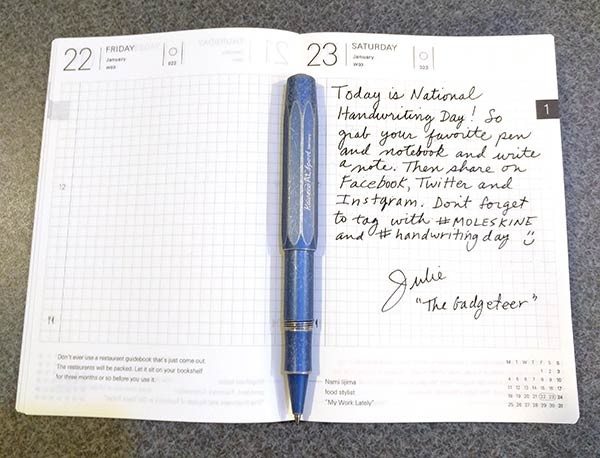 22 FRIDAY
January
W03
022
12
Don't ever use a restaurant guidebook that's just come out.
The restaurants will be packed. Let it sit on your bookshelf
for three months or so before you use it.
Kaweco AL Sport
23 SATURDAY
January
W03
023
1
Today is National
Handwriting Day! So
grab your favorite pen
and notebook and write
a note. Then share on
Facebook, Twitter and
Instgram. Don't forget
to tag with #MOLESKINE
and #handwriting day
Julie
"The Gadgeteer"
Nami Iijima
food stylist
"My Work Lately"
M T W T F S S
1 2 3
4 5 6 7 8 9 10
11 12 13 14 15 16 17
18 19 20 21 22 23 24
25 26 27 28 29 30 31